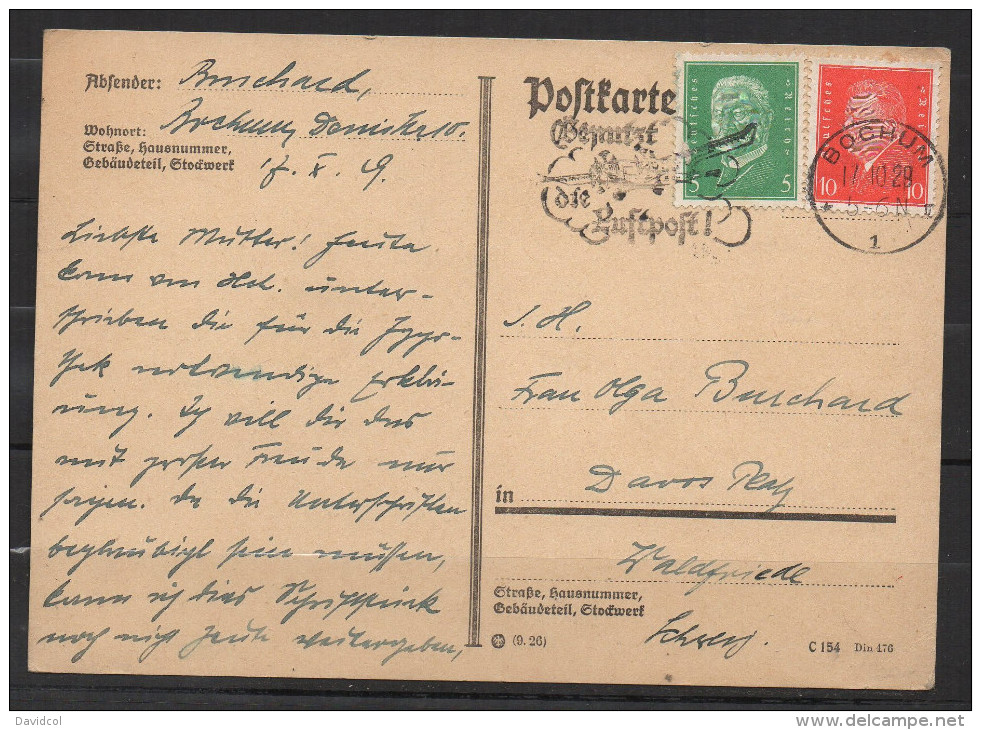 Absender: Burchard,
Wohnort: Bochum,
Straße, Hausnummer,
Gebäudeteil, Stockwerk
17. X 9.
Liebste Mutter! Heute
kam von Hch. unter-
schrieben die für die Hypo-
thek notwendige Erklä-
rung. Ich will dir das
mit großer Freude nur
sagen. Da die Unterschriften
beglaubigt sein müssen,
kann ich dies Schriftstück
noch nicht heute weitergeben,
Postkarte
Benutzt
die
Luftpost!
Deutsches Reich
5 5
Deutsches Reich
10 10
BOCHUM
17.10.29
5-6 N
1
S. H.
Frau Olga Burchard
in Davos Platz
Waldfriede
Straße, Hausnummer,
Gebäudeteil, Stockwerk
Schweiz.
(9. 26)
C 154 Din 476
Davidcol
www.delcampe.net